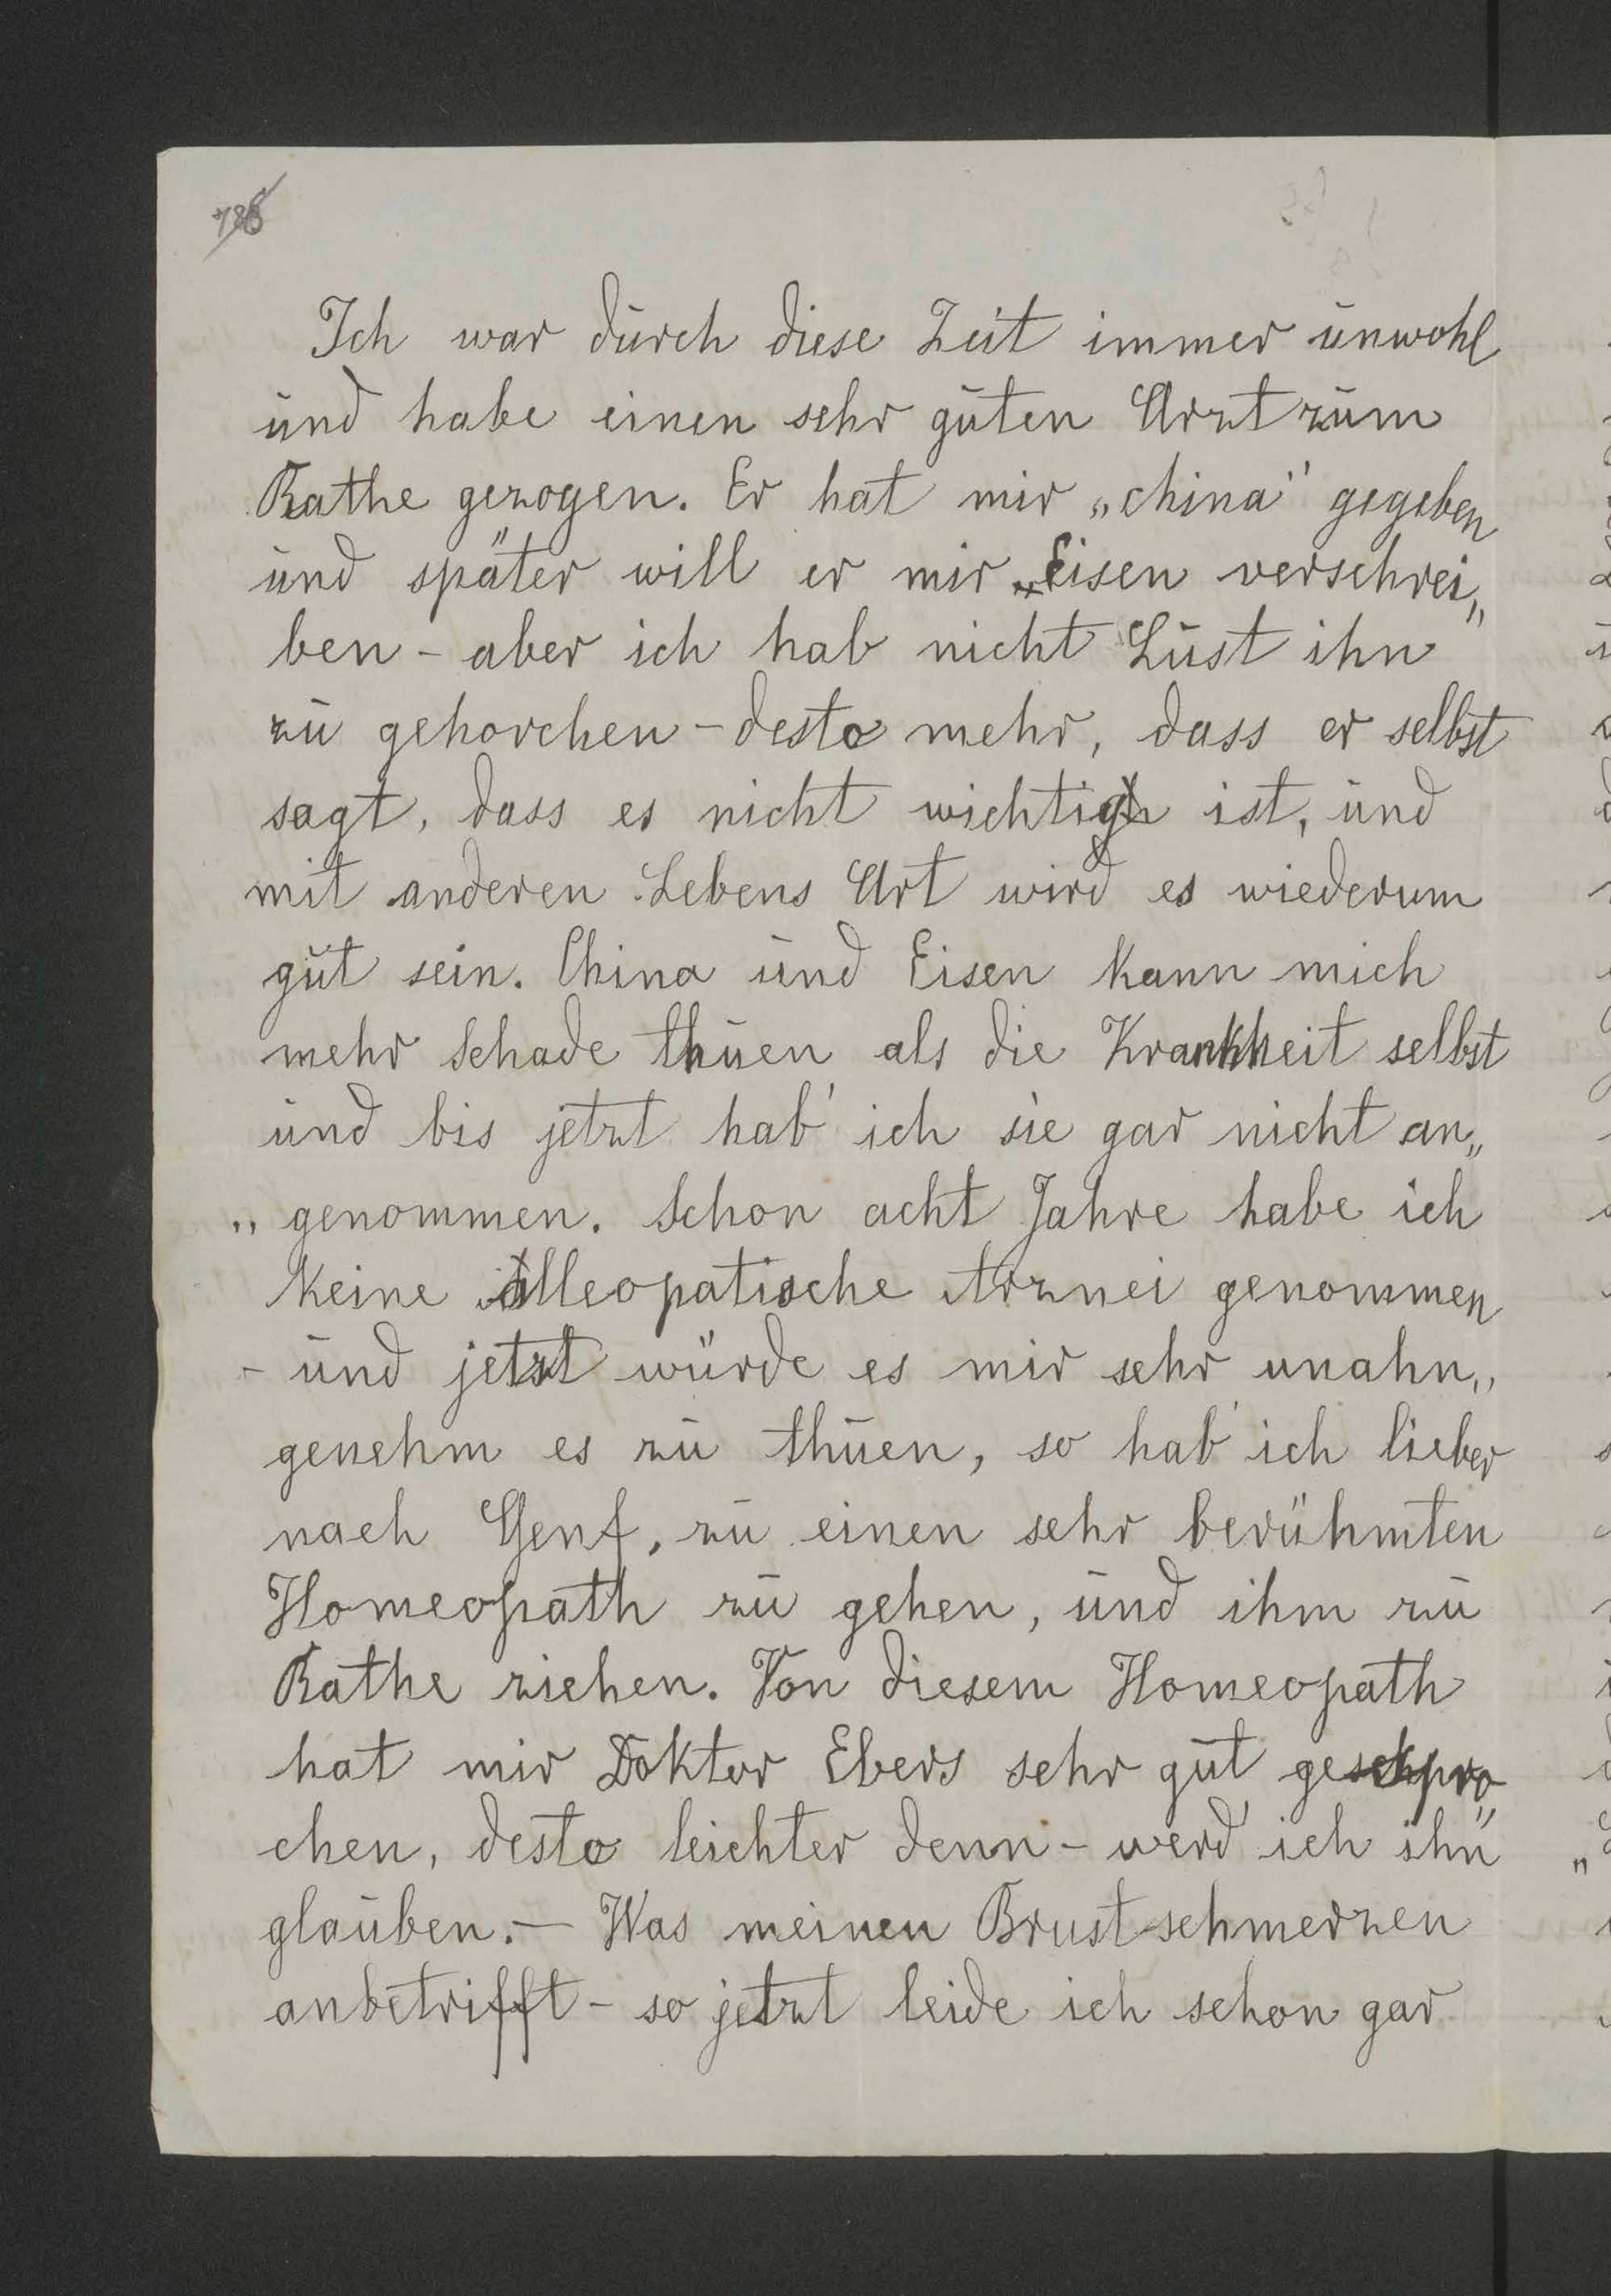 786
Ich war durch diese Zeit immer unwohl
und habe einen sehr guten Arzt zum
Rathe gezogen. Er hat mir „china" gegeben
und später will er mir Eisen verschrei„
ben - aber ich hab nicht Lust ihn
zu gehorchen - desto mehr, dass er selbst
sagt, dass es nicht wichtig ist, und
mit anderen Lebens Art wird es wiederum
gut sein. China und Eisen kann mich
mehr Schade thuen als die Krankheit selbst
und bis jetzt hab' ich sie gar nicht an„
„genommen. Schon acht Jahre habe ich
keine alleopatische Arznei genommen
- und jetzt würde es mir sehr unahn„
genehm es zu thuen, so hab' ich lieber
nach Genf, zu einen sehr berühmten
Homeopath zu gehen, und ihm zu
Rathe ziehen. Von diesem Homeopath
hat mir Doktor Ebers sehr gut gespro„
chen, desto leichter denn - werd' ich ihn
glauben. — Was meinen Brust-schmerzen
anbetrifft - so jetzt leide ich schon gar